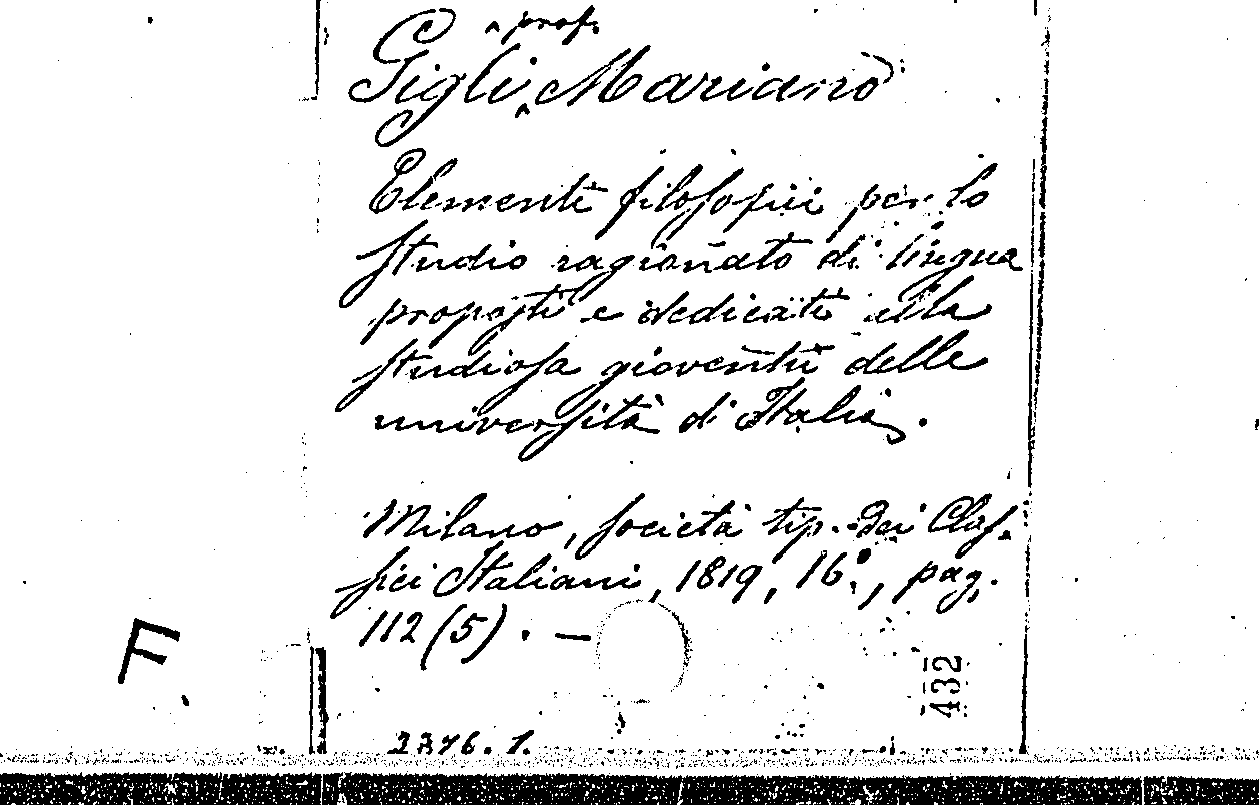 prof.
Gigli, Mariano
Elementi filosofici per lo
studio ragionato di lingua
proposti e dedicati alla
studiosa gioventù delle
università di Italia.
Milano, società tip. dei Clas-
sici Italiani, 1819, 16°., pag.
112 (5). —
F.
432